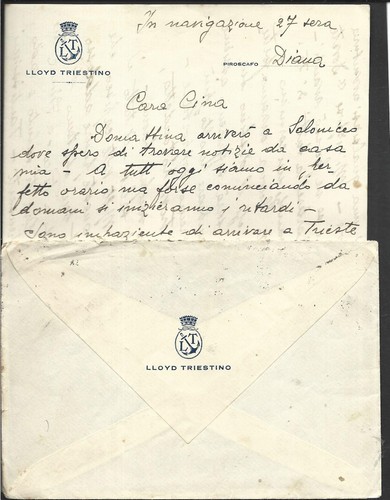 In navigazione 27 sera
LLOYD TRIESTINO
PIROSCAFO Diana
Cara Cina
Domattina arriverò a Salonicco
dove spero di trovare notizie da casa
mia - A tutt'oggi siamo in per
fetto orario ma forse cominciando da
domani si inizieranno i ritardi -
Sono impaziente di arrivare a Trieste
LLOYD TRIESTINO